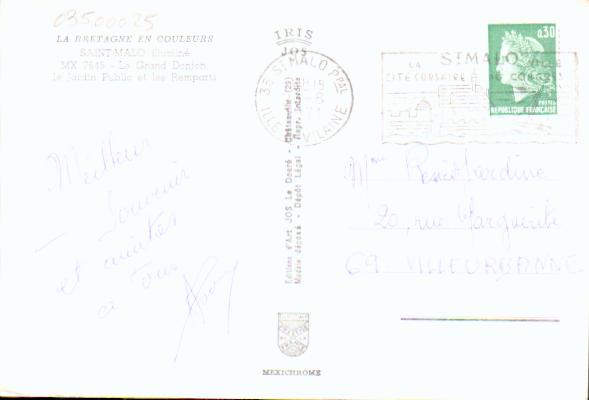 03500025
LA BRETAGNE EN COULEURS
SAINT-MALO illuminé
MX 7645 - Le Grand Donjon,
le Jardin Public et les Remparts
Meilleur
Souvenir
et amitiés
à tous
IRIS
JOS
35 ST MALO Ppal
ILLE VILAINE
Editions d'Art JOS Le Doaré - Châteaulin (29) - Repr. Interdite
Modèle déposé - Dépôt Légal
MEXICHROME
ST MALO
LA
CITÉ CORSAIRE
0,30
POSTES
REPUBLIQUE FRANÇAISE
Mme
20, rue Marguerite
69 VILLEURBANNE